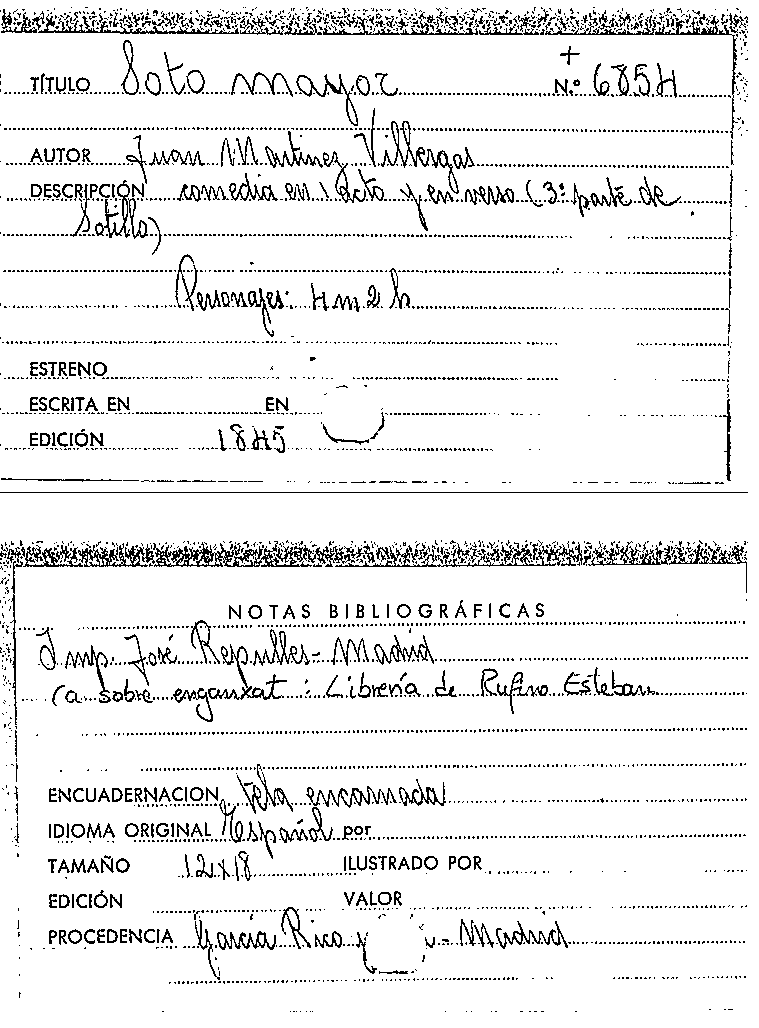 TÍTULO Soto mayor + N.º 6854
AUTOR Juan Martinez Villergas
DESCRIPCIÓN comedia en 1 acto y en verso (3ª parte de
Sotillo)
Personajes: 4 m 2 h
ESTRENO
ESCRITA EN EN
EDICIÓN 1845
NOTAS BIBLIOGRÁFICAS
Imp. José Repulles - Madrid
(a sobre enganxat: Librería de Rufino Esteban
ENCUADERNACION tela encarnada
IDIOMA ORIGINAL Español por
TAMAÑO 12x18 ILUSTRADO POR
EDICIÓN VALOR
PROCEDENCIA García Rico y - Madrid